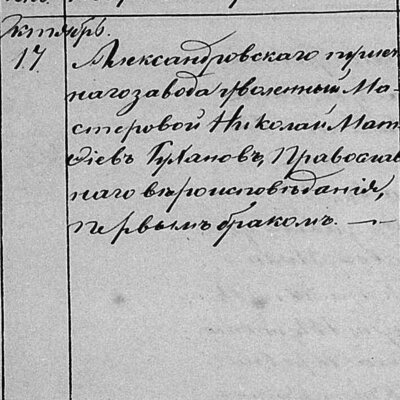 Октябрь.
17. Александровскаго пушеч
наго завода уволенный Ма-
стеровой Николай Мат
ѳіевъ Гуханов, Православ
наго вѣроисповѣданія,
первымъ бракомъ. —